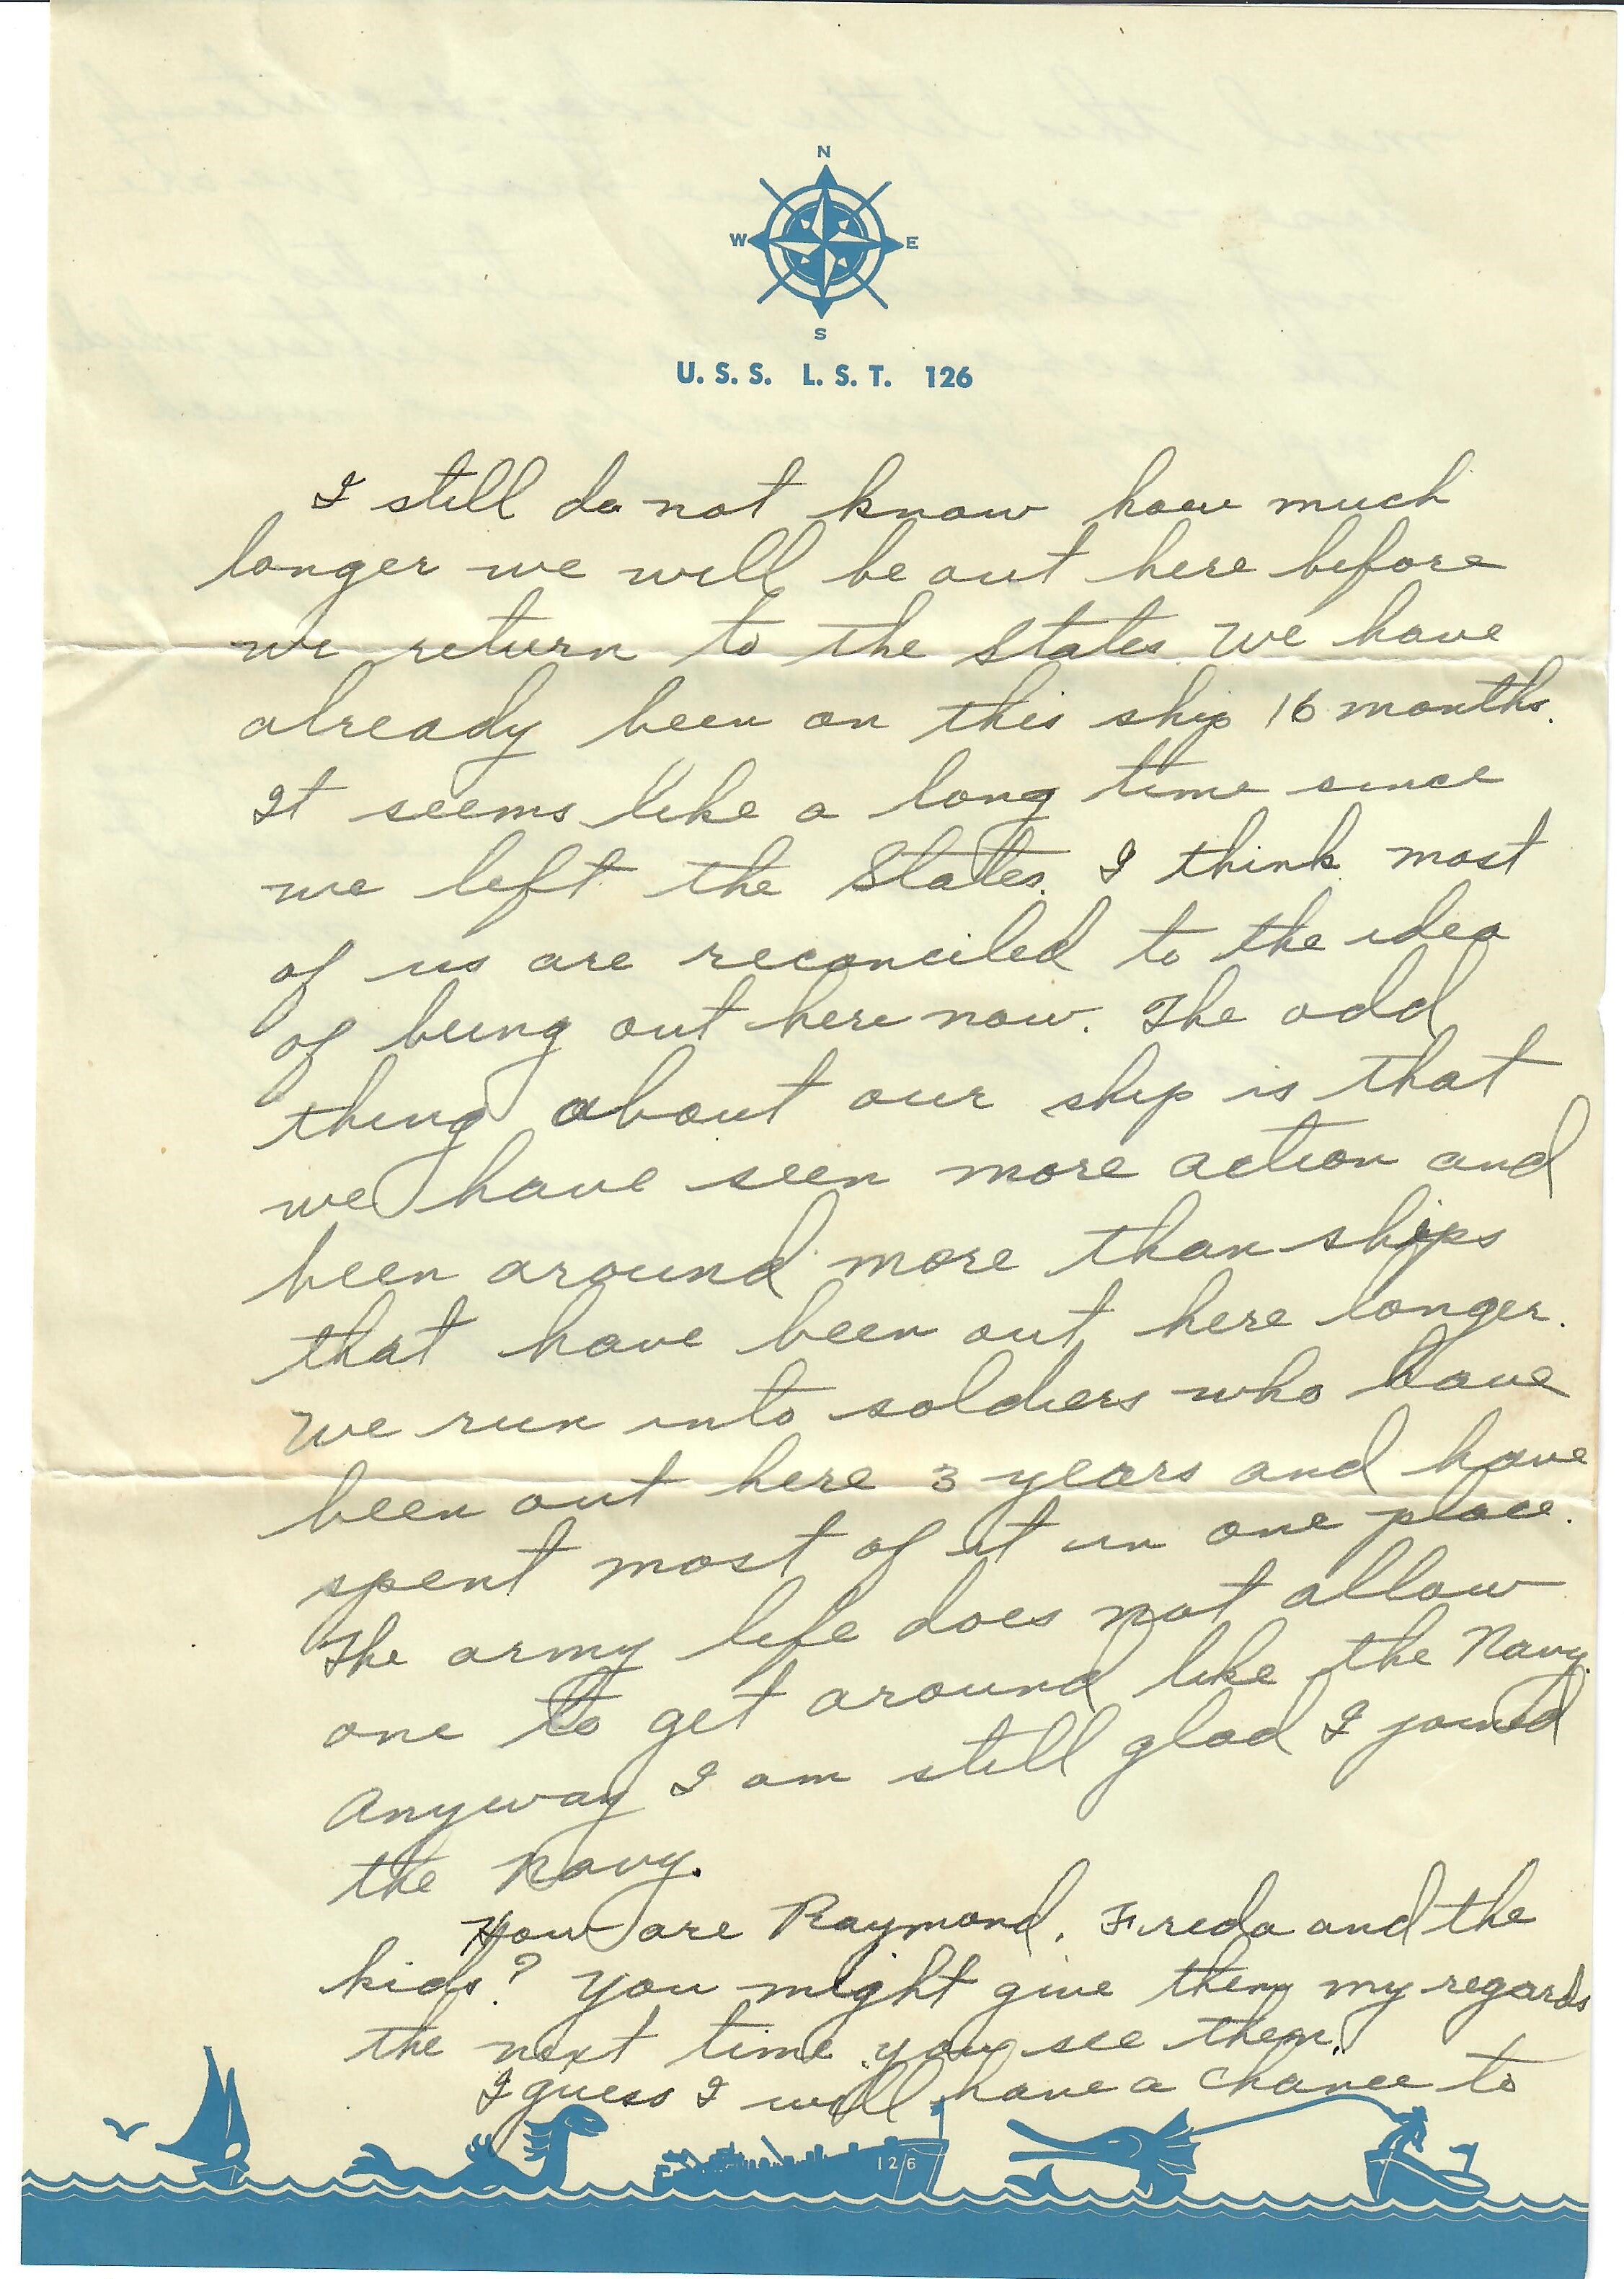 N
W E
S
U. S. S. L. S. T. 126
I still do not know how much
longer we will be out here before
we return to the States. We have
already been on this ship 16 months.
It seems like a long time since
we left the States. I think most
of us are reconciled to the idea
of being out here now. The odd
thing about our ship is that
we have seen more action and
been around more than ships
that have been out here longer.
We run into soldiers who have
been out here 3 years and have
spent most of it in one place.
The army life does not allow
one to get around like the Navy.
Anyway I am still glad I joined
the Navy.
How are Raymond, Freda and the
kids? You might give them my regards
the next time you see them.
I guess I will have a chance to
126